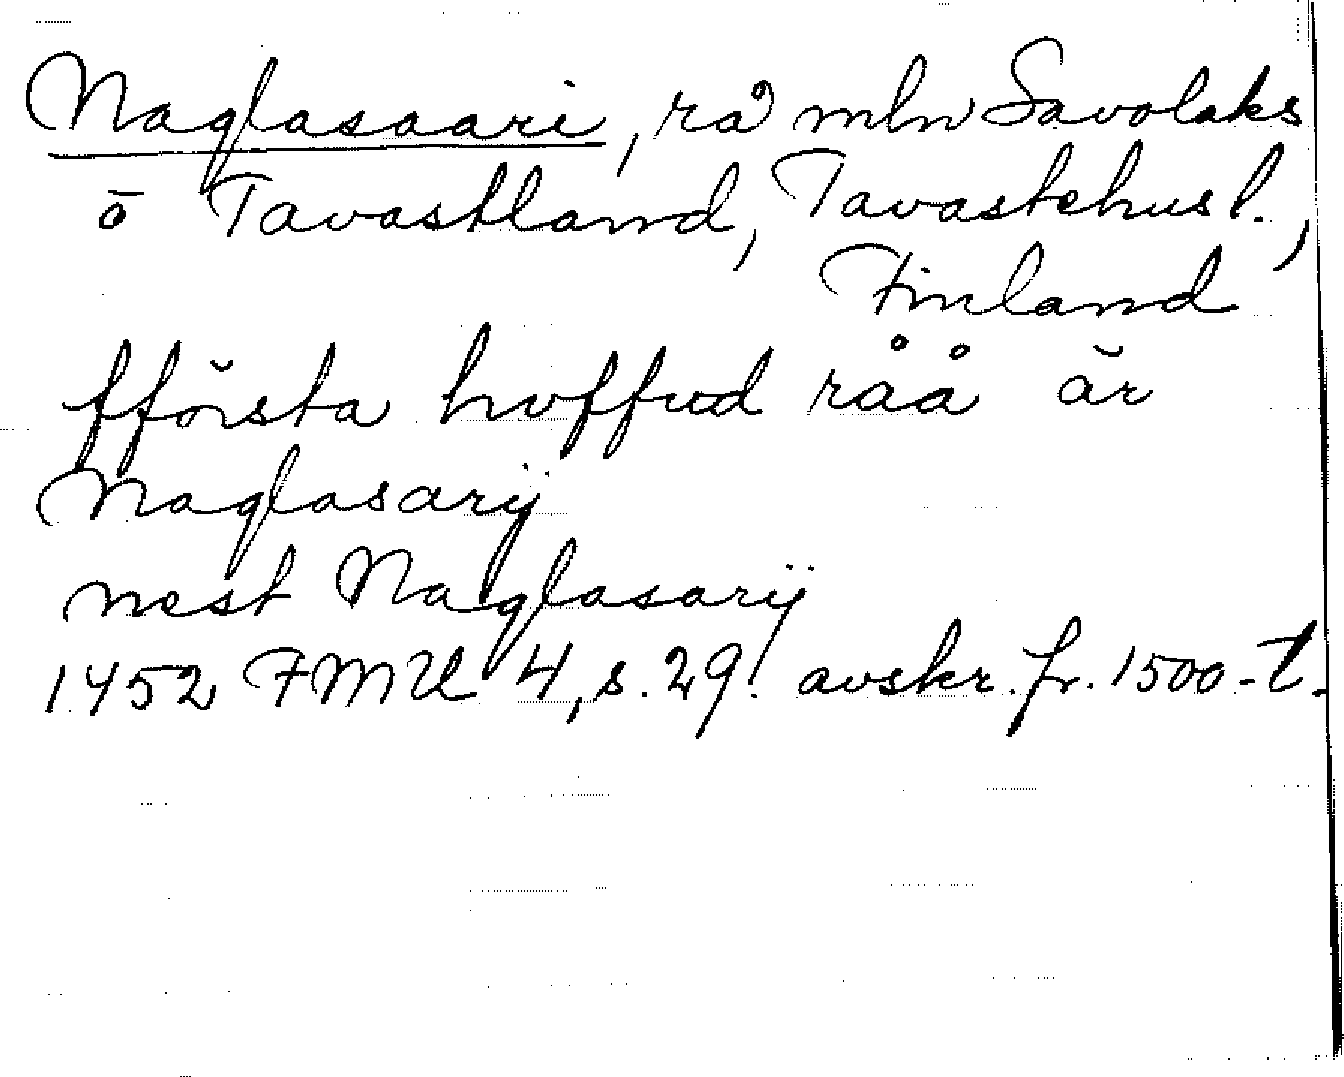 Naglasaari, rå mln Savolaks
o Tavastland, Tavastehus l.,
Finland
fförsta huffud råå är
Naglasarÿ
nest Naglasarÿ
1452 FMU 4, s. 29. avskr. fr. 1500-t.